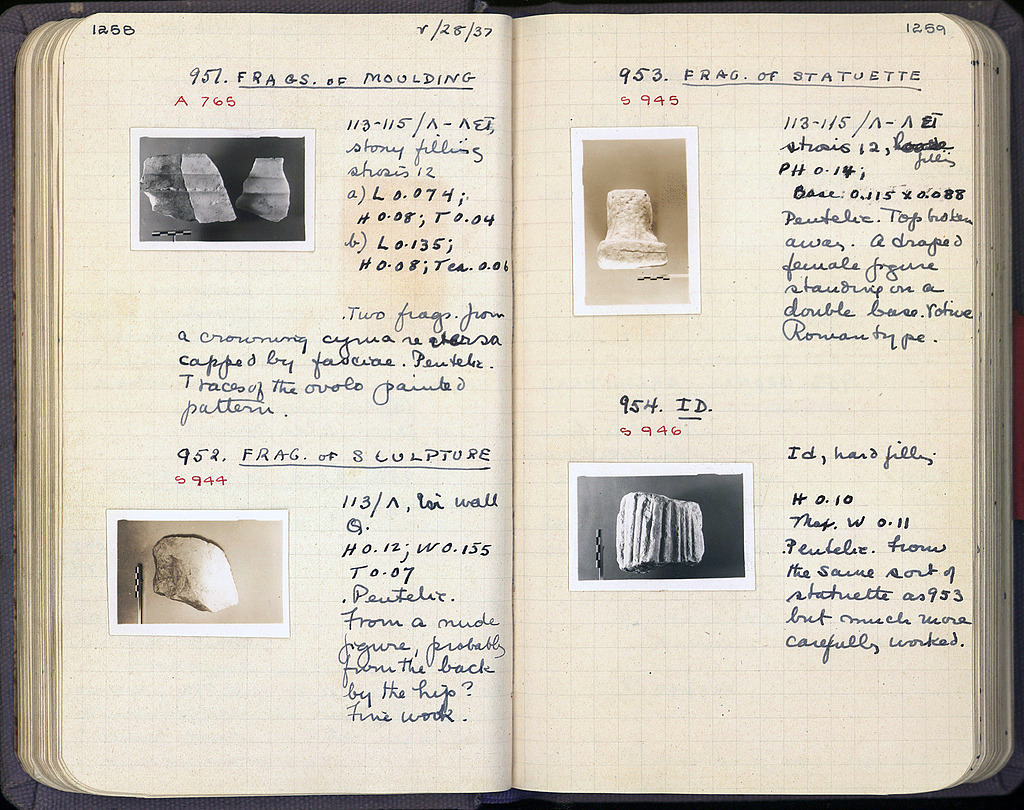 1258
V/28/37
951. FRAGS. OF MOULDING
A 765
113-115/Λ-ΛΣΤ,
stony filling
strosis 12
a) L 0.074;
H 0.08; T 0.04
b) L 0.135;
H 0.08; T ca. 0.06
Two frags. from
a crowning cyma reversa
capped by fasciae. Pentelic.
Traces of the ovolo painted
pattern.
952. FRAG. OF SCULPTURE
S 944
113/Λ, in wall
Q.
H 0.12; W 0.155
T 0.07
Pentelic.
From a nude
figure, probably
from the back
by the hip?
Fine work.
1259
953. FRAG. OF STATUETTE
S 945
113-115/Λ-ΛΣΤ
strosis 12,
filling
PH 0.14;
Base: 0.115 x 0.088
Pentelic. Top broken
away. A draped
female figure
standing on a
double base. Votive
Roman type.
954. ID.
S 946
Id, hard filling
H 0.10
Max. W 0.11
Pentelic. From
the same sort of
statuette as 953
but much more
carefully worked.